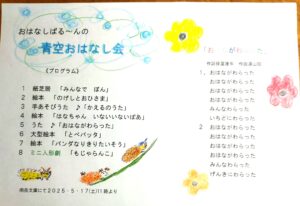 おはなしぱる〜んの
青空おはなし会
《プログラム》
1 紙芝居 「みんなで ぽん」
2 絵本 「のげしとおひさま」
3 手あそびうた ♪「かえるのうた」
4 絵本 「はなちゃん いないいないばあ」
5 うた ♪「おはながわらった」
6 大型絵本 「とべバッタ」
7 絵本 「パンダなりきりたいそう」
8 ミニ人形劇 「もじゃらんこ」
2025・5・17(土)11時より
「おはながわらった」
1，おはながわらった
おはながわらった
おはながわらった
おはながわらった
みんなわらった
いちどにわらった
2，おはながわらった
おはながわらった
おはながわらった
おはながわらった
みんなわらった
げんきにわらった